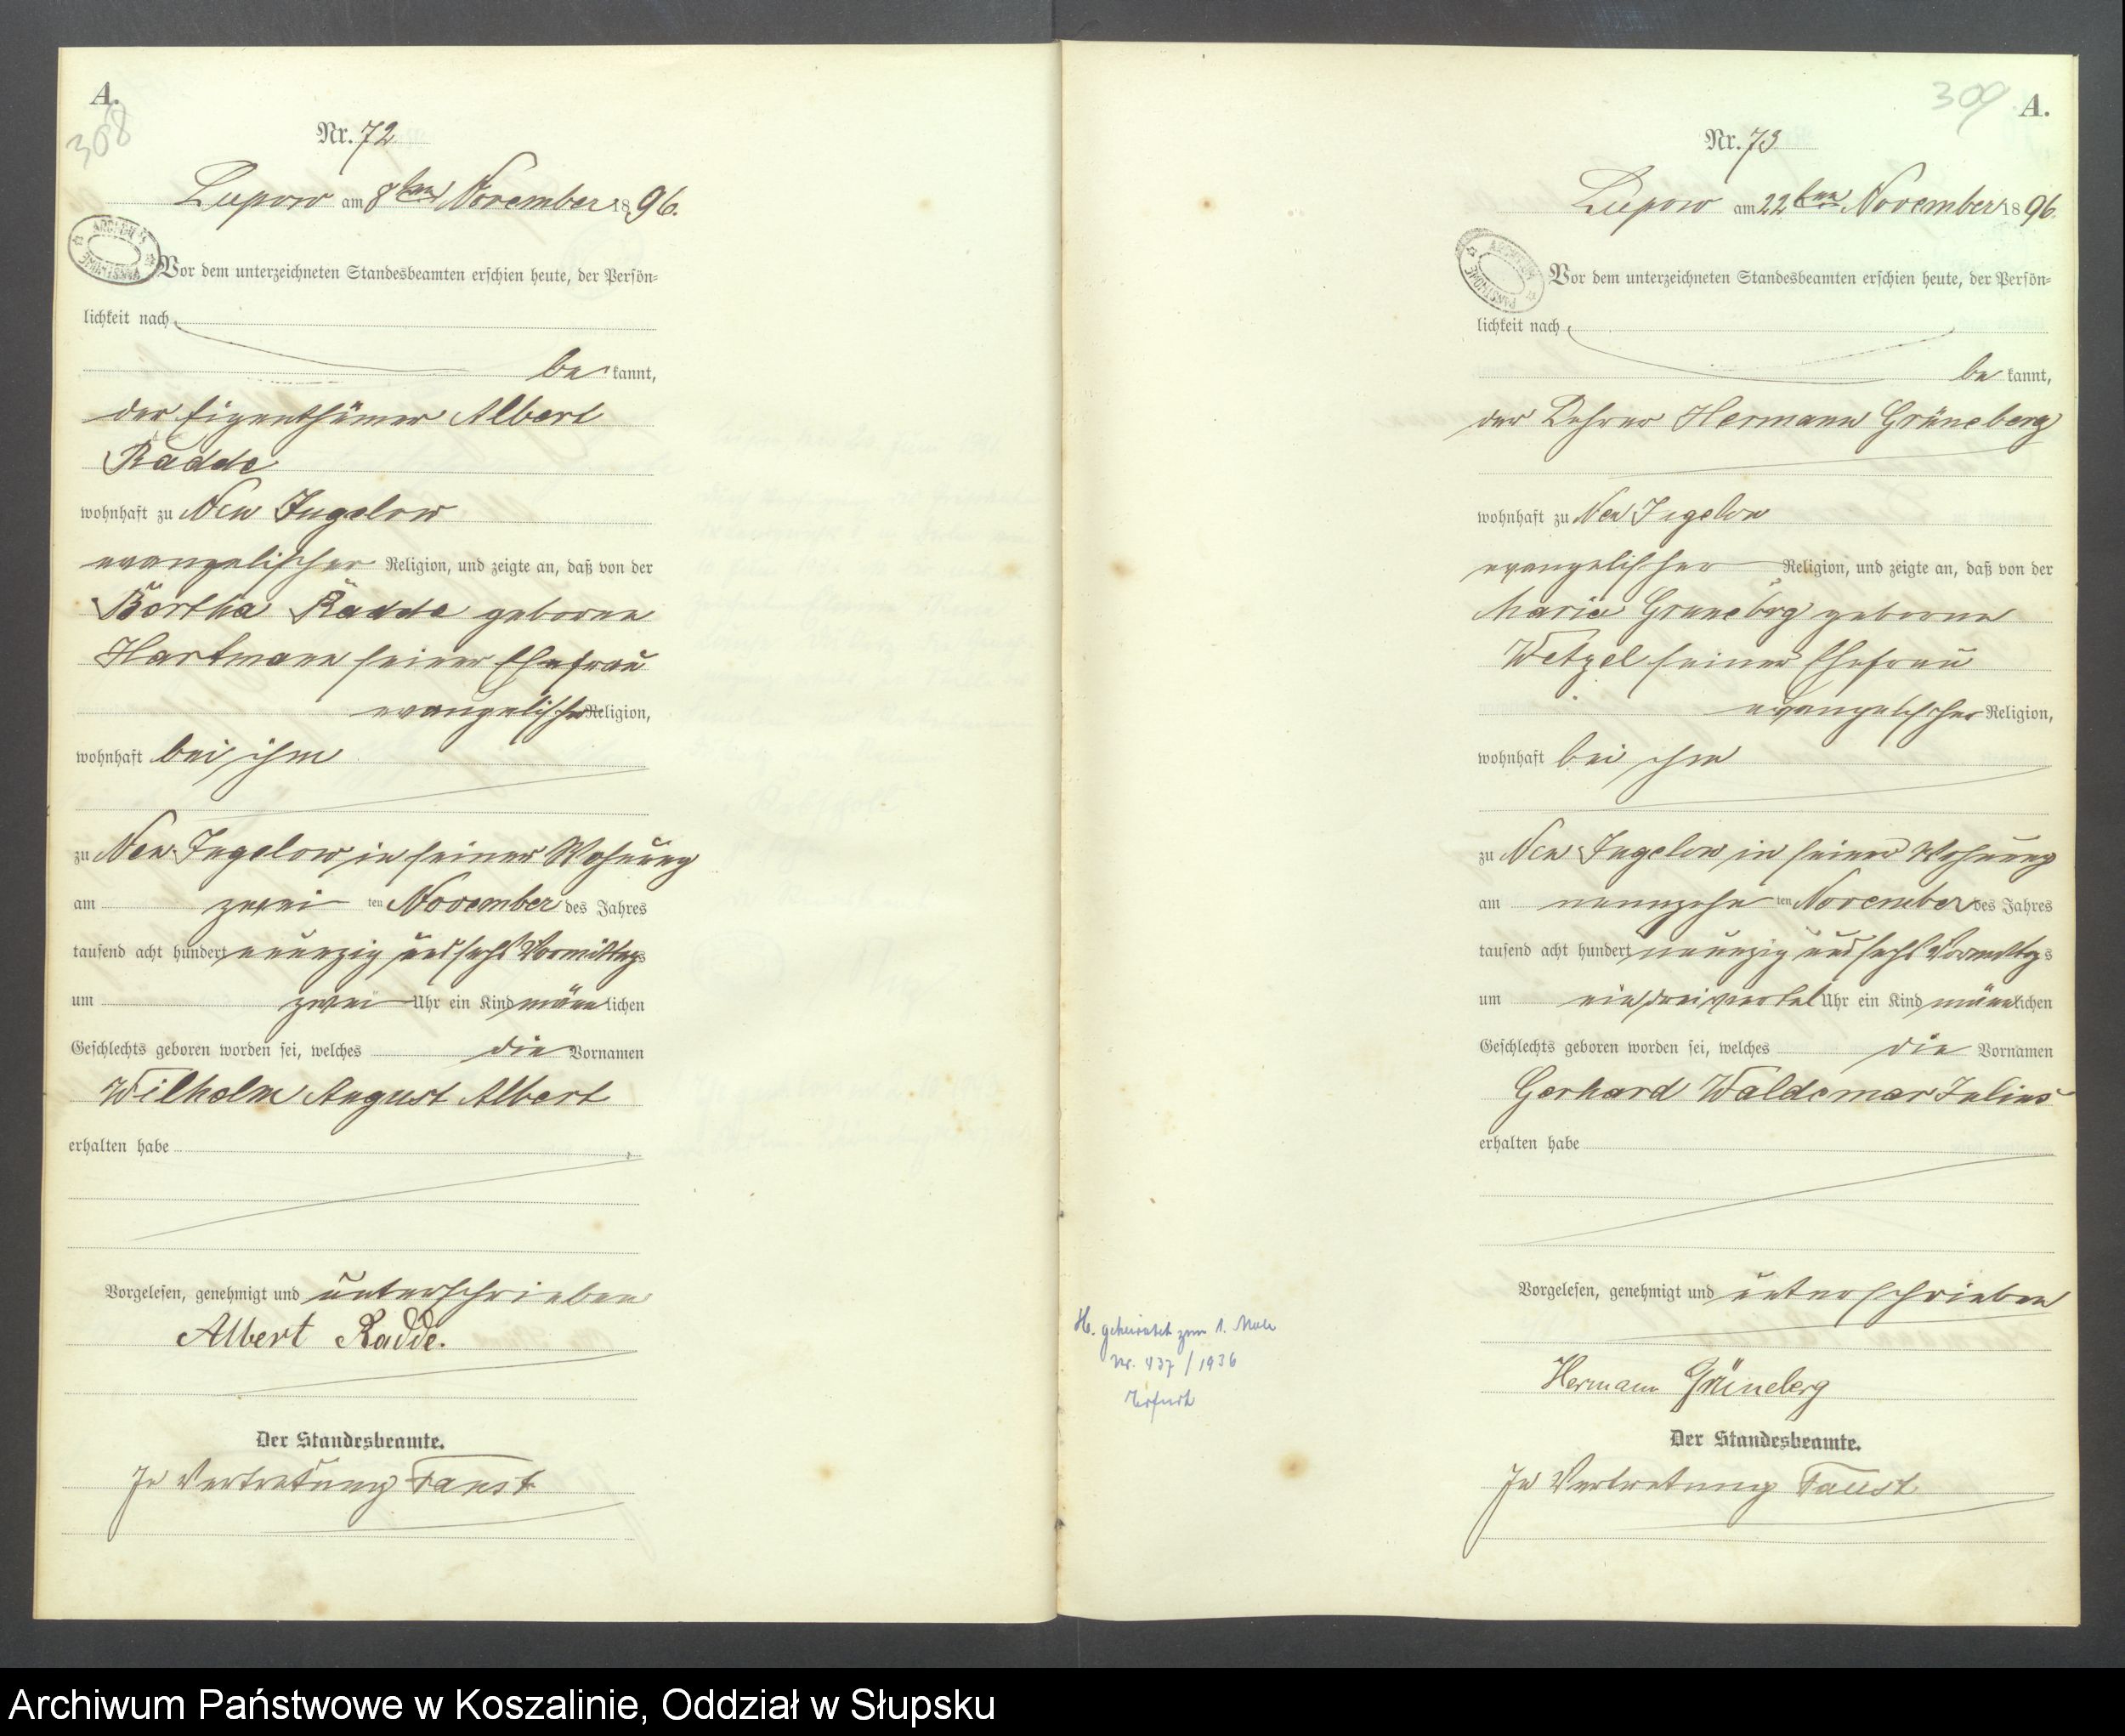 A.
308
Nr. 72
Lupow am 8ten November 1896.
ARCHIWUM PAŃSTWOWE
Vor dem unterzeichneten Standesbeamten erschien heute, der Persön-
lichkeit nach
bekannt,
der Eigenthümer Albert
Radde
wohnhaft zu Neu Jugelow
evangelischer Religion, und zeigte an, daß von der
Bertha Radde geborne
Hartmann seiner Ehefrau
evangelischer Religion,
wohnhaft bei ihm
zu Neu Jugelow in seiner Wohnung
am zweiten November des Jahres
tausend acht hundert neunzig und sechs Vormittags
um zwei Uhr ein Kind männlichen
Geschlechts geboren worden sei, welches die Vornamen
Wilhelm August Albert
erhalten habe
Vorgelesen, genehmigt und unterschrieben
Albert Radde.
Der Standesbeamte.
In Vertretung Faust
309
A.
Nr. 73
Lupow am 22ten November 1896.
ARCHIWUM PAŃSTWOWE
Vor dem unterzeichneten Standesbeamten erschien heute, der Persön-
lichkeit nach
bekannt,
der Lehrer Hermann Grüneberg
wohnhaft zu Neu Jugelow
evangelischer Religion, und zeigte an, daß von der
Marie Grüneberg geborne
Wetzel seiner Ehefrau
evangelischer Religion,
wohnhaft bei ihm
zu Neu Jugelow in seiner Wohnung
am neunzehnten November des Jahres
tausend acht hundert neunzig und sechs Vormittags
um ein dreiviertel Uhr ein Kind männlichen
Geschlechts geboren worden sei, welches die Vornamen
Gerhard Waldemar Julius
erhalten habe
Vorgelesen, genehmigt und unterschrieben
Hermann Grüneberg
Der Standesbeamte.
In Vertretung Faust
geheiratet zum 1. Male
Nr. 437/1936
Erfurt
Archiwum Państwowe w Koszalinie, Oddział w Słupsku